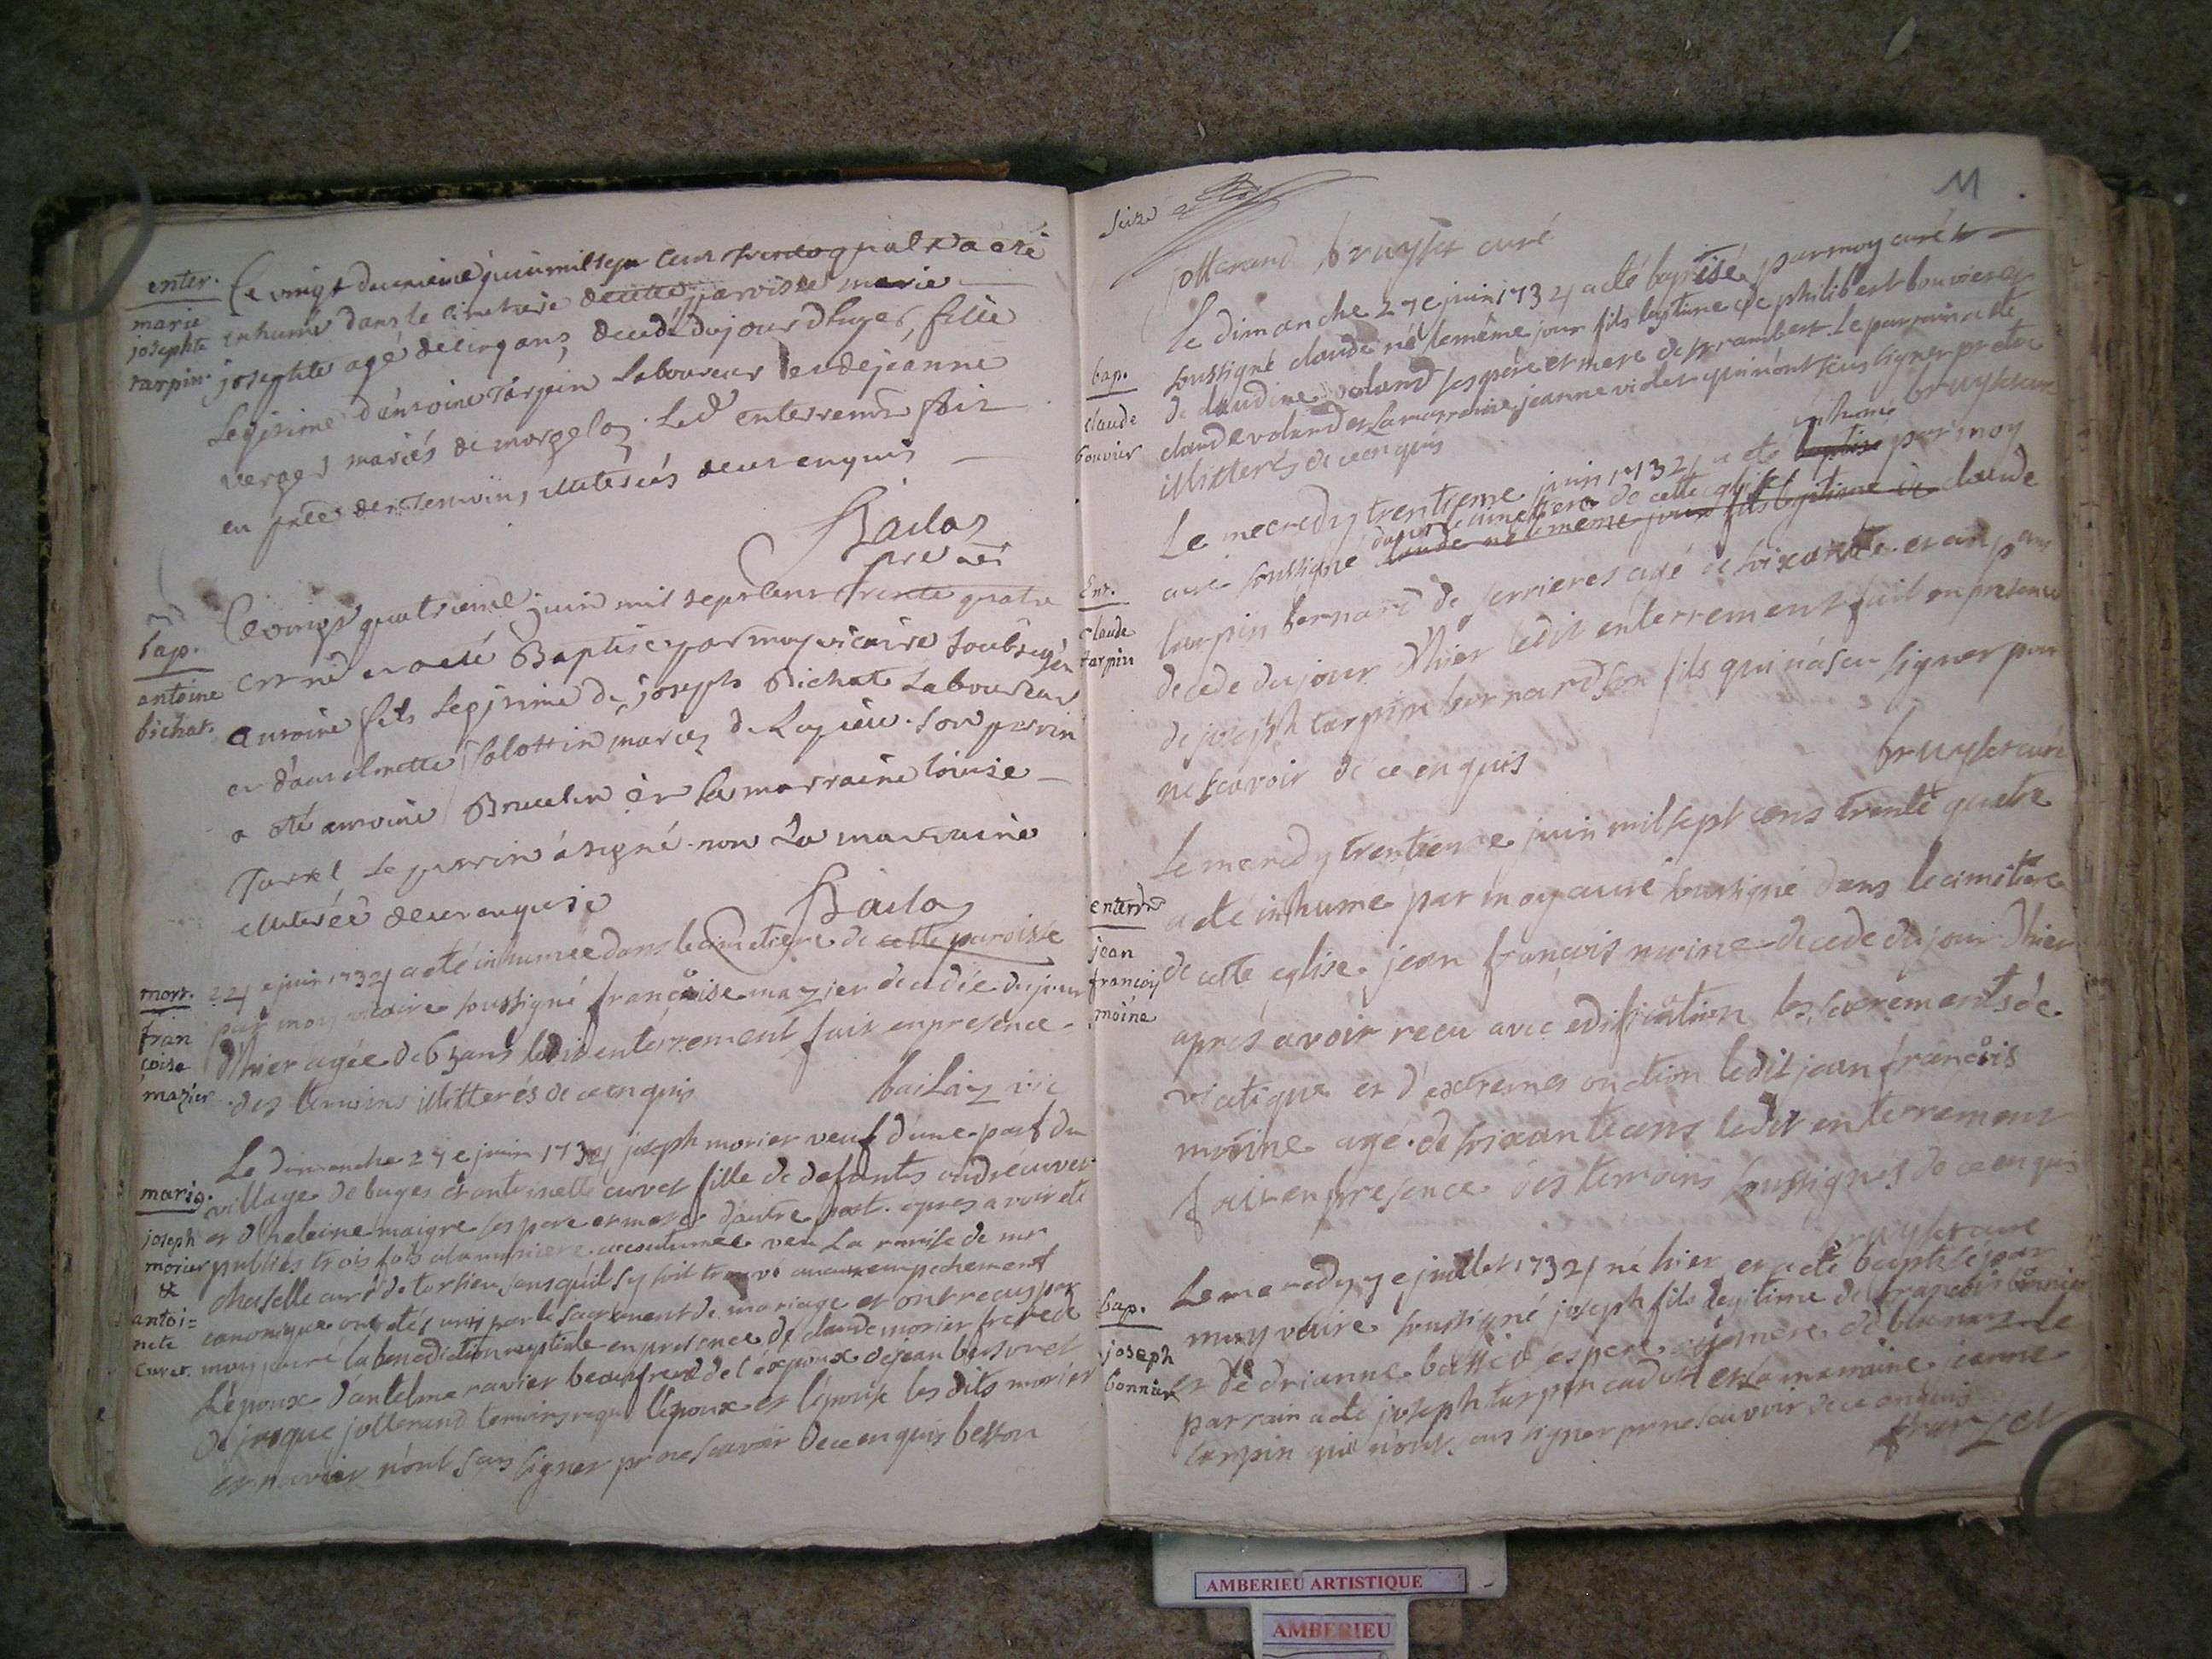 enter.
marie
josephte
tarpin.
Ce vingt deuxieme juin mil sept cent trente quatre a été
inhumée dans le cimetiere de cette parroisse marie
josephte agé de cinq ans, decedé du jour d'hyer, fille
Legitime d'antoine Tarpin Laboureur et de jeanne
verger mariés de morgelaz. Led enterremt fait
en prêes des Temoins illiterés de ce enquis
Bailaz
pre vic
bap.
antoine
bichat.
Ce vingt quatrieme juin mil sept cent trente quatre
est né et a eté Baptisé par moy vicaire soubsigné
antoine fils Legitime de joseph Bichat Laboureur
et d'antelmette Colottin mariez de Lagnieu. Son parrin
a oté antoine Brucelin et la marraine louise
Turrel Le parrin a signé non La marraine
illiterée de ce enquise
Bailaz
mort.
fran
coise
mazier
24 e juin 1734 a eté inhumée dans le cimetiere de cette paroisse
par moy vicaire soussigné francoise mazier decedée du jour
d'hier agée de 63 ans ledit enterrement fait en presence
des temoins illitterés de ce enquis bailaz vic
mariag.
joseph
morier
&
antoi=
nete
curet.
Le dimanche 27 e juin 1734 joseph morier veuf d'une part du
village de buges et antoinette cuvet fille de defunts andré cuvet
et d'heleine maigre ses pere et mere d'autre part. apres avoir eté
publiés trois fois a la maniere accoutumée veu La remise de mr
chaselle curé de torcieu sans qu'il sy soit trouvé aucun empechement
canonique ont etés unis par le sacrement de mariage et ont receus par
moy curé la benediction nuptiale en presence de claude morier frere de
L'epoux d'antelme ravier beaufrere de l'epoux de jean
de jaques jotterand temoins requis l'epoux et l'epouse les dits morier
et ravier n'ont sceu signer pr ne scavoir de ce enquis besson
seize
11
jotterand bruyset curé
bap.
claude
bouvier
Le dimanche 27 e juin 1734 a eté baptisé par moy curé
soussigné claude né le même jour fils legitime de philibert bouvier et
de claudine voland ses pere et mere de st rambert. Le parrain a eté
claude voland et La marraine jeanne violet qui n'ont sceu signer pr etre
illitterés de ce enquis bruyset curé
Ent.
claude
tarpin
inhumé
Le mecredy trentieme juin 1734 a eté baptisé par moy
dans le cimettiere de cette eglise
curé soussigné claude né le meme jour fils legitime de claude
tarpin bernard de serrieres agé de soixante et cinq ans
decede du jour d'hier ledit enterrement fait en presence
de joseph tarpin bernard son fils qui n'a sceu signer pour
ne scavoir de ce enquis bruyset curé
enterrmt
jean
francois
moine
Le mecredy trentieme juin mil sept cens trente quatre
a eté inhumé par moy curé soussigné dans le cimitiere
de cette eglise jean francois moine decedé du jour d'hier
aprés avoir recu avec edification les sacrements de
viatique et d'extreme onction ledit jean francois
moine agé de soixante ans ledit enterrement
fait en presence des temoins soussignés de ce enquis
bruyset curé
bap.
joseph
bonnier
Le mecredy 7 e juillet 1734 né hier et a eté baptisé par
moy vicaire soussigné joseph fils legitime de francois bonnier
et de drianne ses pere et mere de blanaz le
parrain a eté joseph tarpin cadet et La marraine jeanne
tarpin qui n'ont sceus signer pr ne scavoir de ce enquis
AMBERIEU ARTISTIQUE
AMBERIEU